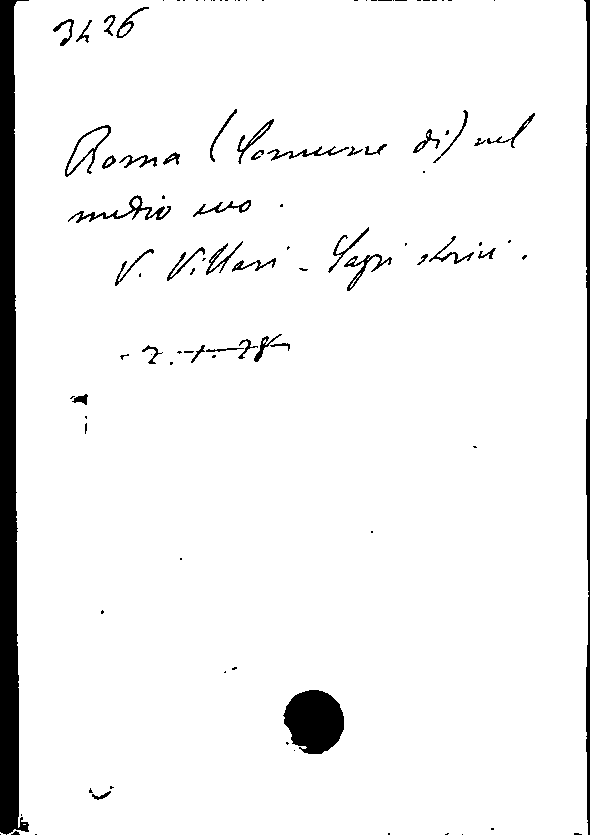 3426
Roma (Comune di) nel
medio evo.
V. Villari - Saggi storici.
- 2. 1. 28